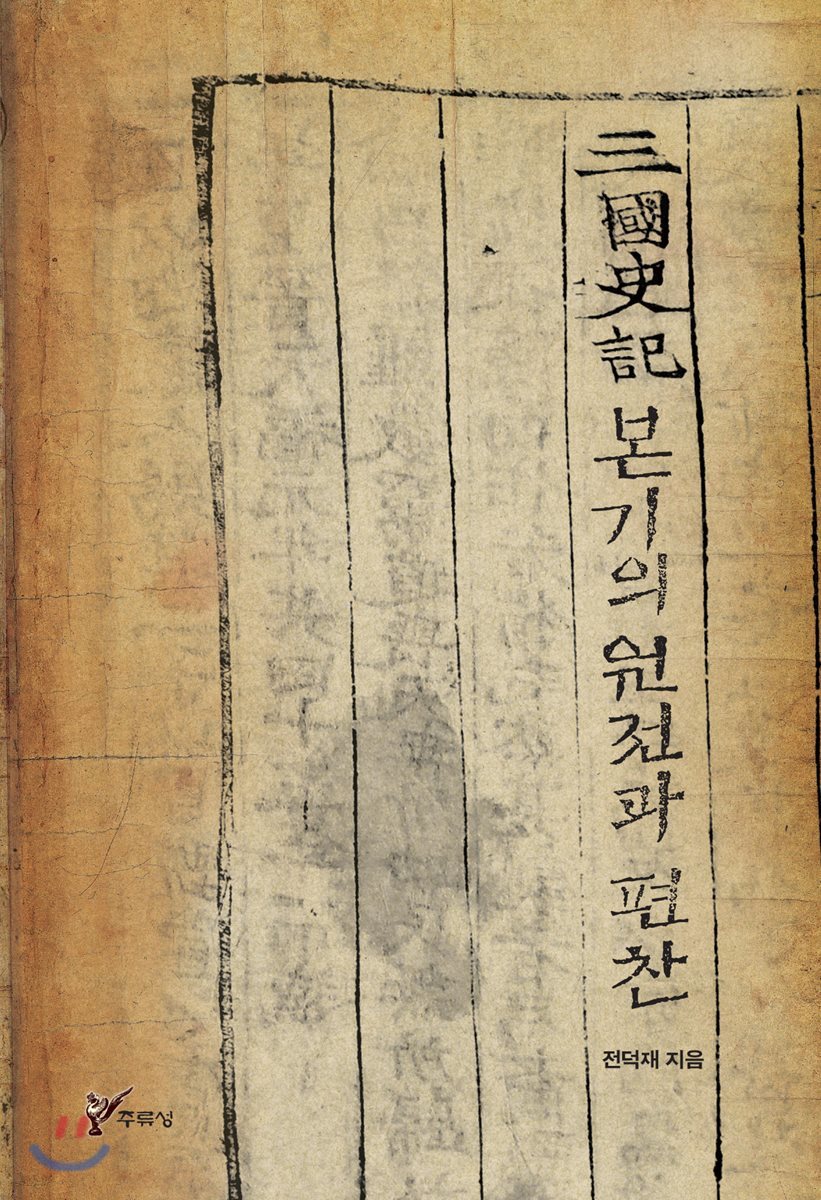 三國史記 본기의 원전과 편찬
전덕재 지음
주류성